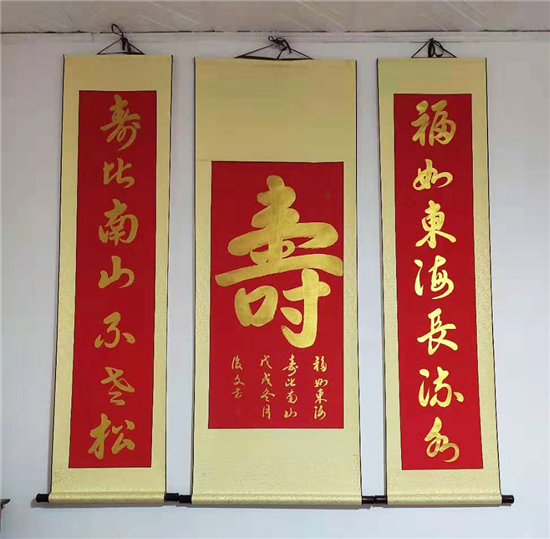 福如東海長流水
壽
福如東海
壽比南山
戊戌冬月
寿比南山不老松